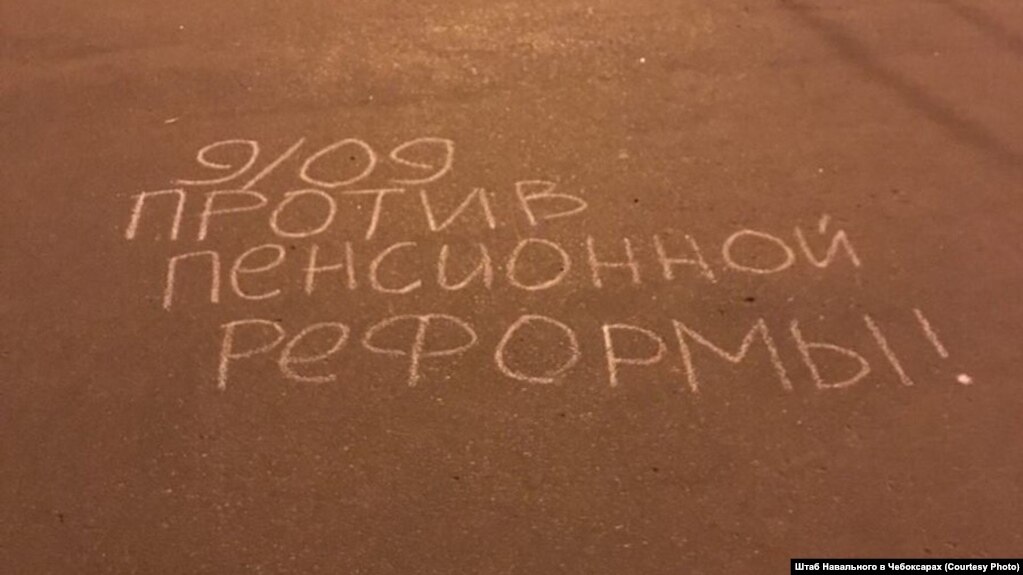 9/09
ПРОТИВ
ПеНСИОННОЙ
РеФОРМЫ!
Штаб Навального в Чебоксарах (Courtesy Photo)